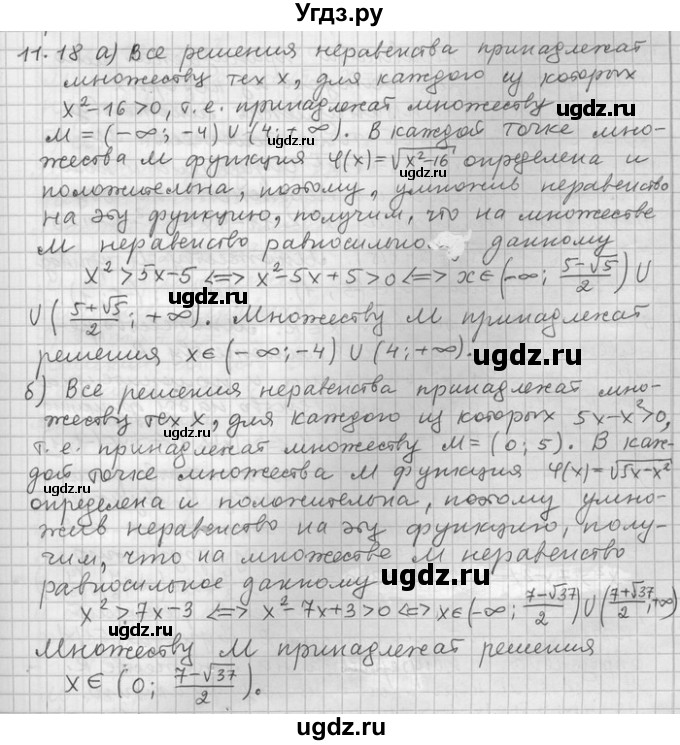 Угдз.ру
11.18 а) Все решения неравенства принадлежат
множеству тех x, для каждого из которых
x²-16>0, т.е. принадлежат множеству
M = (-∞; -4) ∪ (4; +∞). В каждой точке мно-
жества M функция φ(x)=√(x²-16) определена и
положительна, поэтому, умножив неравенство
на эту функцию, получим, что на множестве
M неравенство равносильно данному
x²>5x-5 <=> x²-5x+5>0 <=> x∈(-∞; (5-√5)/2) ∪
∪ ((5+√5)/2; +∞). Множеству M принадлежат
решения x∈(-∞;-4) ∪ (4;+∞).
б) Все решения неравенства принадлежат мно-
жеству тех x, для каждого из которых 5x-x²>0,
т.е. принадлежат множеству M=(0; 5). В каж-
дой точке множества M функция φ(x)=√(5x-x²)
определена и положительна, поэтому умно-
жив неравенство на эту функцию, полу-
чим, что на множестве M неравенство
равносильное данному
x²>7x-3 <=> x²-7x+3>0 <=> x∈(-∞; (7-√37)/2)∪((7+√37)/2;+∞)
Множеству M принадлежат решения
x∈ (0; (7-√37)/2).
ugdz.ru